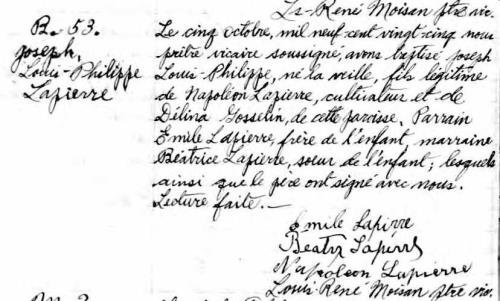 Ls-René Moisan ptre vic.
B. 53.
Joseph,
Louis-Philippe
Lapierre
Le cinq octobre, mil neuf cent vingt-cinq nous
prêtre vicaire soussigné, avons baptisé Joseph
Louis-Philippe, né la veille, fils légitime
de Napoléon Lapierre, cultivateur et de
Délina Gosselin, de cette paroisse. Parrain
Emile Lapierre, frère de l'enfant, marraine
Béatrice Lapierre, soeur de l'enfant; lesquels
ainsi que le père ont signé avec nous.
Lecture faite.—
Emile Lapierre
Napoléon Lapierre
Louis-René Moisan ptre vic.